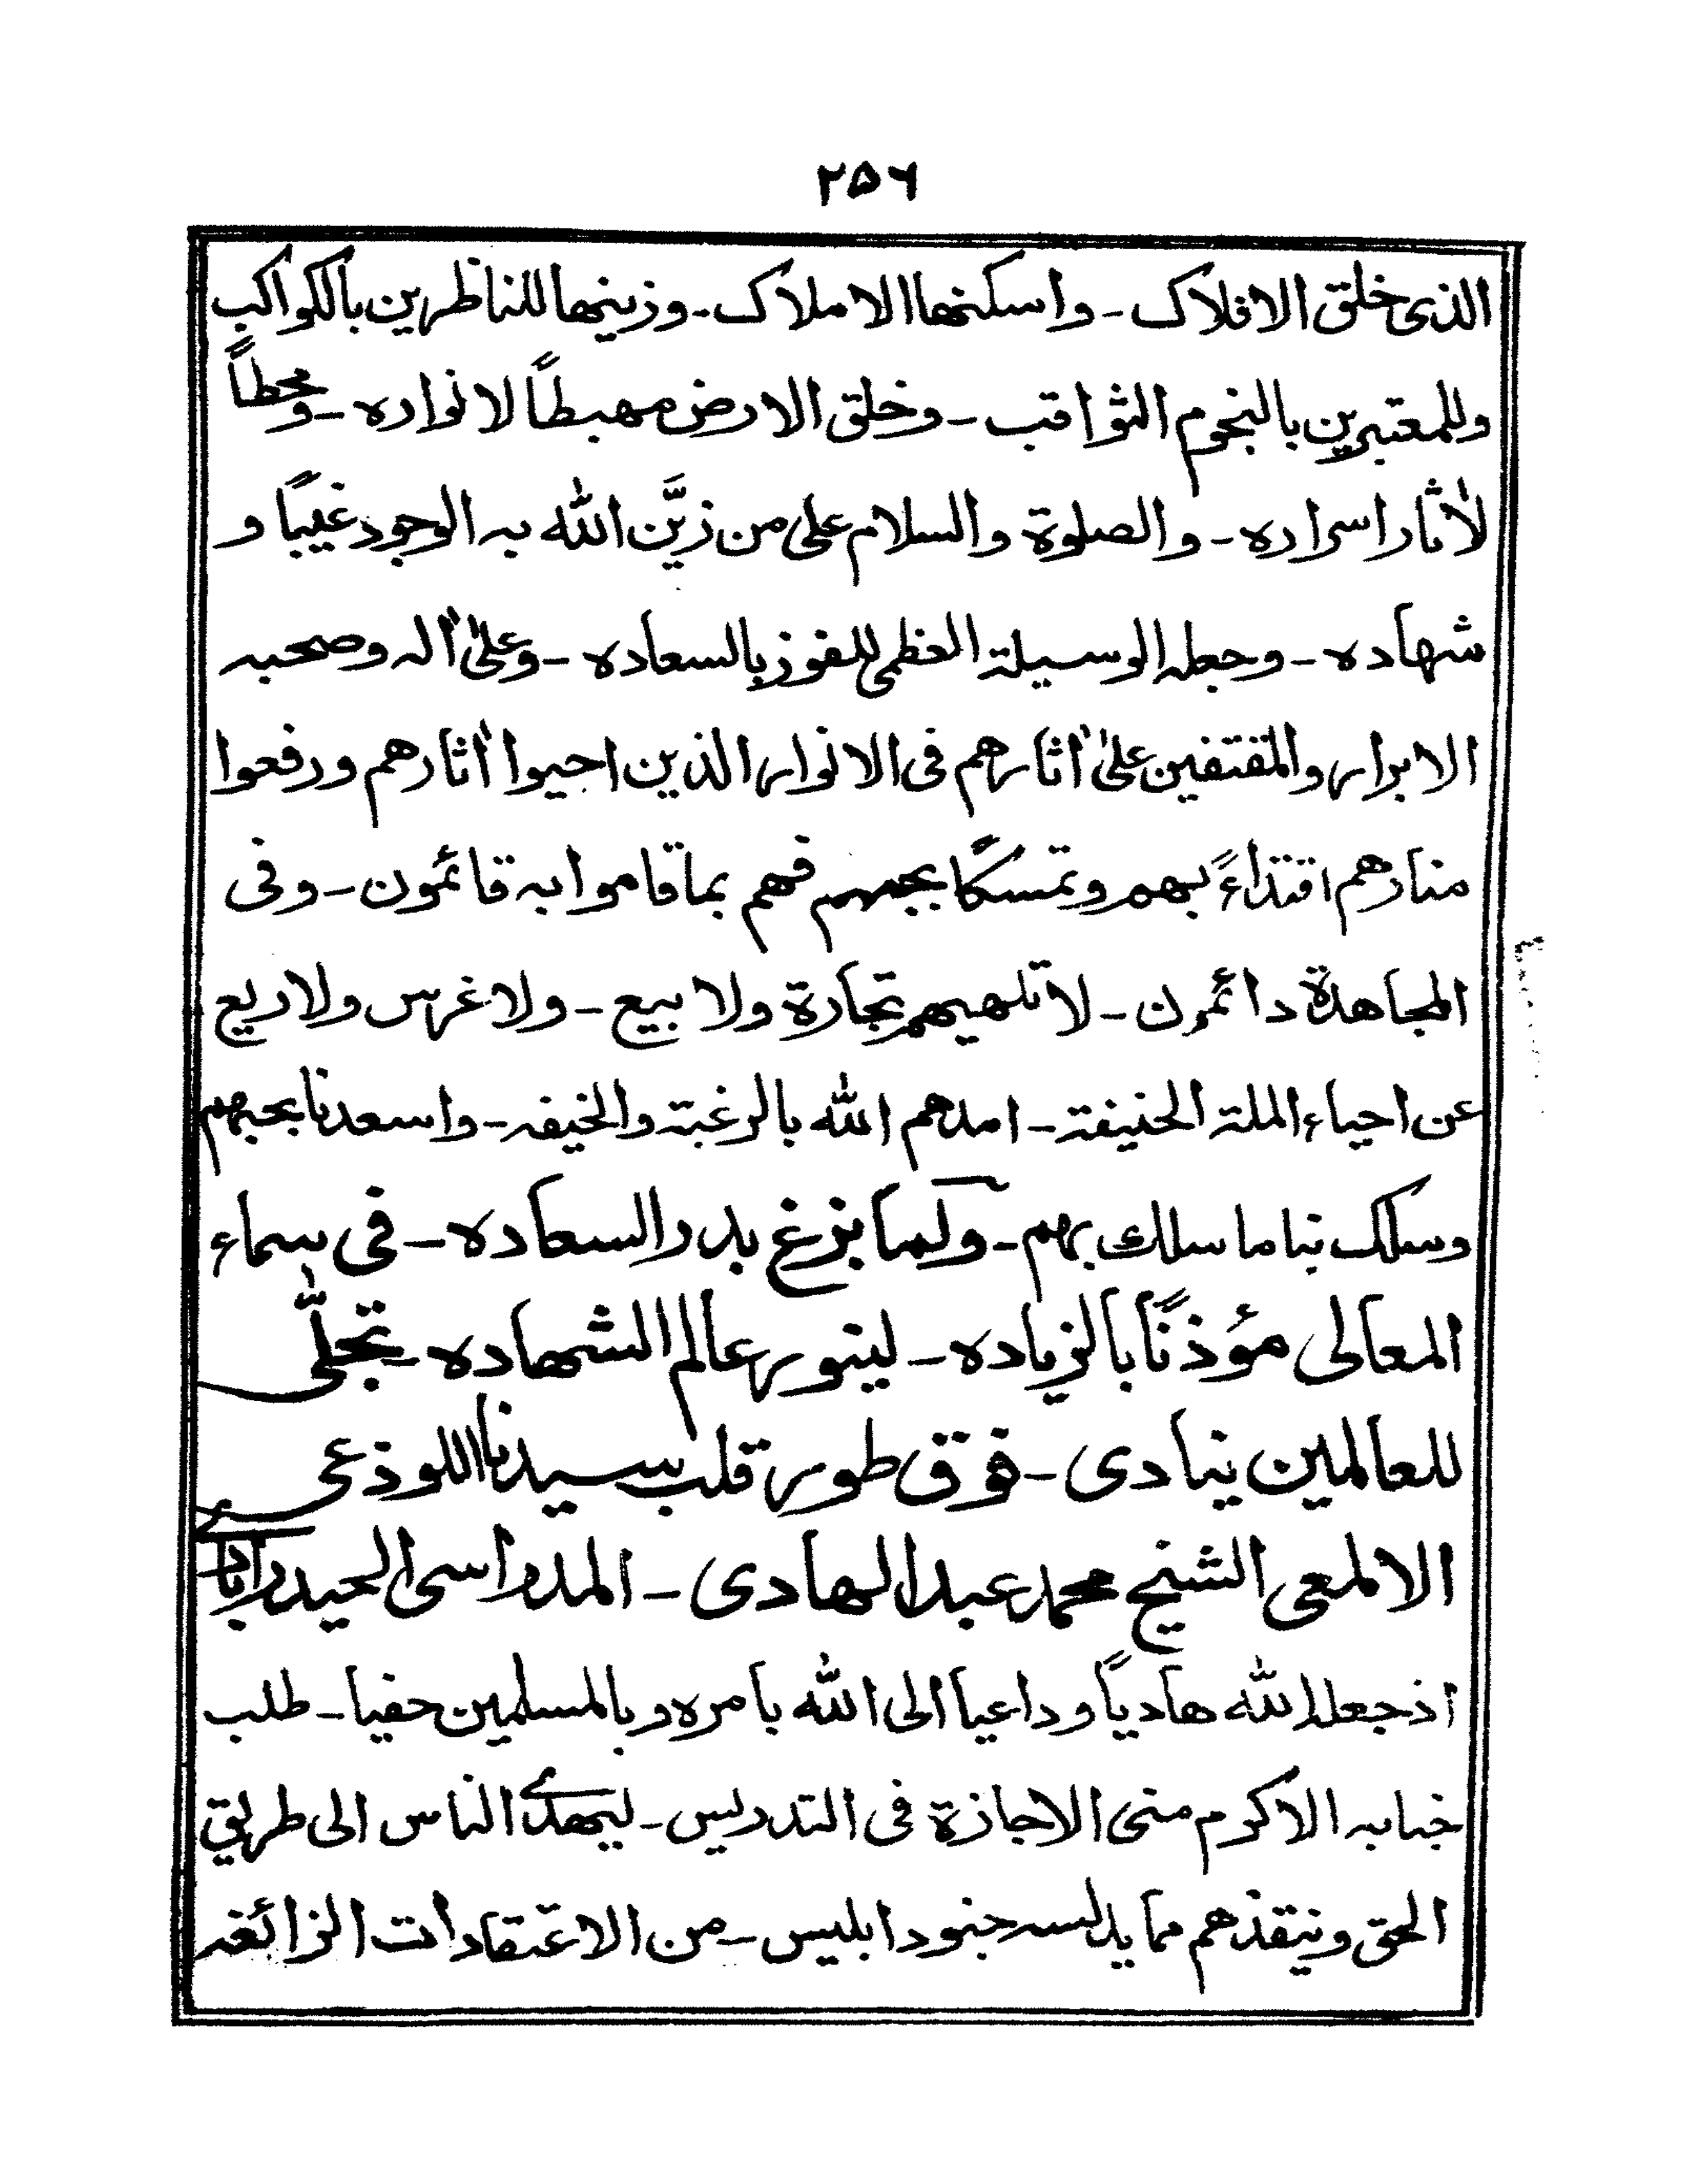 ۲۵۶
الذی خلق الافلاک ـ واسکنھا الاملاک ـ وزینھا للناظرین بالکواکب
وللمعتبرین بالنجوم الثواقب ـ وخلق الارض مھبطاً لانوارہ ـ ومحطاً
لأثار اسرارہ ـ والصلوة والسلام علی من زیَّن اللّٰه بہ الوجود غیباً و
شھادہ ـ وجعلہ الوسیلة العظمی للفوز بالسعادہ ـ وعلیٰ اٰلہ وصحبہ
الابرار والمقتفین علیٰ اٰثارھم فی الانوار الذین احیوا اٰثارھم ورفعوا
منارھم اقتداءً بھم وتمسکاً بحبھم فھم بما قاموا بہ قائمون ـ وفی
المجاھدة دائمون ـ لا تلھیھم تجارة ولا بیع ـ ولا غرس ولا ریع
عن احیاء الملة الحنیفة ـ امدھم اللّٰه بالرغبة والخیفہ ـ واسعدنا بحبھم
وسلک بنا ما سلک بھم ـ ولما بزغ بدر السعادہ ـ فی سماء
المعالی مؤذناً بالزیادہ ـ لینور عالم الشھادہ ـ تجلّی
للعالمین ینادی ـ فوق طور قلب سیدنا اللوذعی
الالمعی الشیخ محمد عبد الھادی ـ المدراسی الحیدرابادی
اذ جعلہ اللّٰه ھادیاً وداعیا الی اللّٰه بامرہ وبالمسلمین حفیا ـ طلب
جنابہ الاکرم منی الاجازة فی التدریس ـ لیھدی الناس الی طریق
الحق وینقذھم مما یدلسہ جنود ابلیس ـ من الاعتقادات الزائغہ